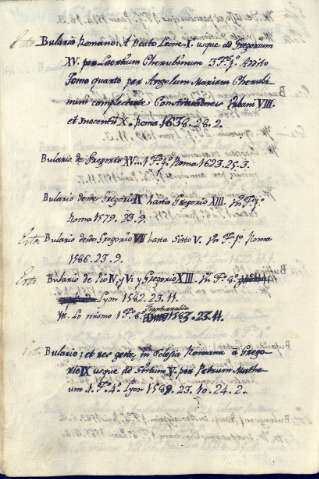 Bulario Romano. A Beato Leone X. usque ad Gregorium
XV. por Laertium Cherubinum 3 Tˢ fº Addito
Tomo quarto per Angelum Mariam Cherubi
num complectente Constitutiones Urbani VIII.
et Inocentii X. Roma 1638. 26. 2.
Bulario de Gregorio XV. 1 Tº fº Roma 1623. 25. 3.
Bulario desde Gregorio IX hasta Gregorio XIII. 1 Tº fº
Roma 1579. 23. 9.
Bulario desde Gregorio VII hasta Sixto V. 1 Tº fº Roma
1586. 23. 9.
Bulario de Pio IV, y V, y Gregorio XIII. Tº 4º
Lyon 1582. 23. 11.
Yt. Lo mismo 1 Tº 8º 1583. 23. 11.
Bulario; et res geste, in Eclesia Romana a Grego
rio IX usque ad Sixtum V. per Petrum Mathe
um 1. Tº 4º Lyon 23. 10. 24. 2.